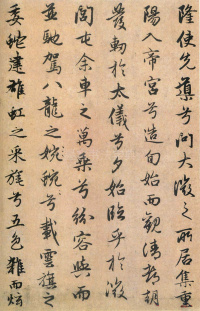 隆使先導兮問大微之所居集重
陽入帝宮兮造旬始而觀清都朝
發軔於太儀兮夕始臨乎於微
閭屯余車之萬乘兮紛容與而
並馳駕八龍之婉婉兮載雲旗之
委蛇建雄虹之采旄兮五色雜而炫